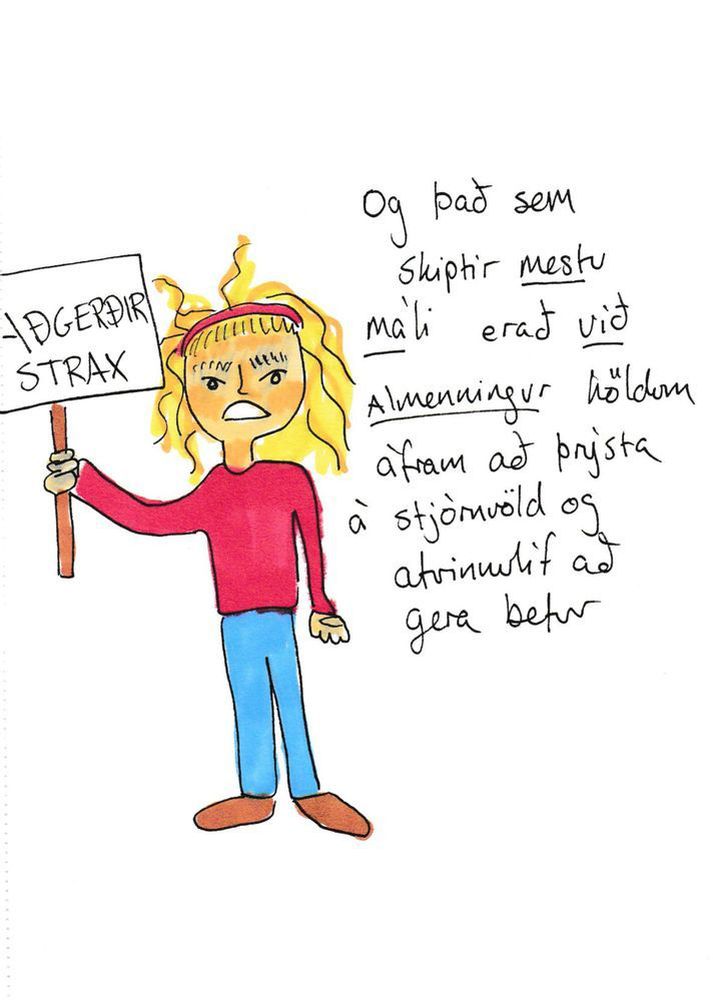 AÐGERÐIR
STRAX
Og það sem
skiptir mestu
máli er að við
Almenningur höldum
áfram að þrýsta
á stjórnvöld og
atvinnulíf að
gera betur